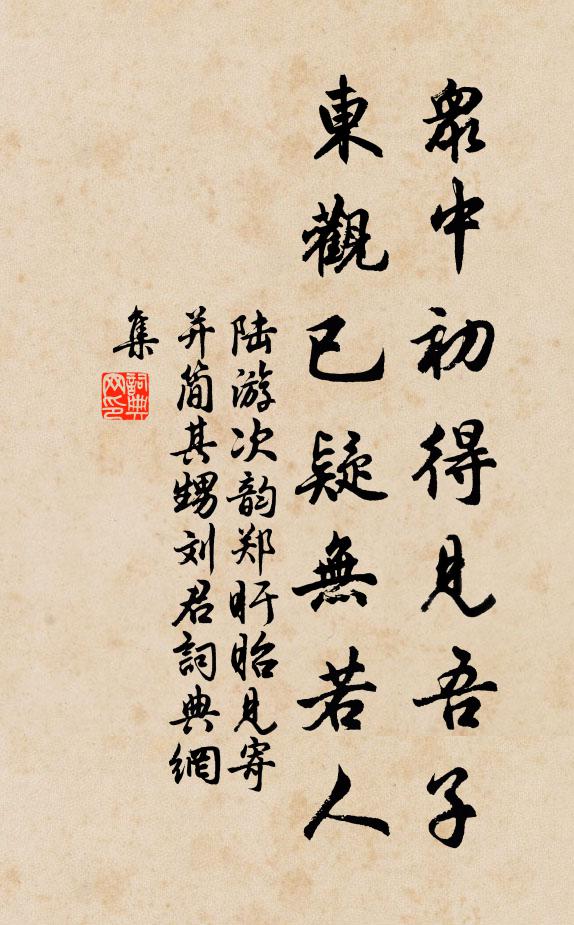 眾中初得見吾子
東觀已疑無若人
陆游次韵郑盱眙见寄
并简其甥刘君詞典網
集
詞典
网印